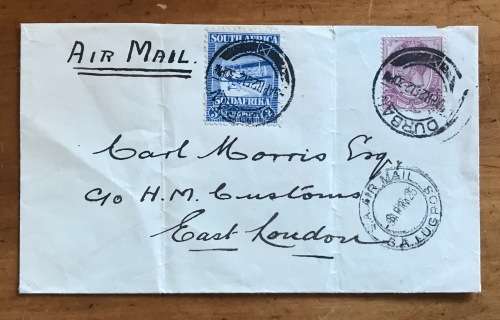 AIR MAIL.
SOUTH AFRICA
SUIDAFRIKA
DURBAN
Carl Morris Esq
c/o H.M. Customs
East London
AIR MAIL
S.A. LUGPOS